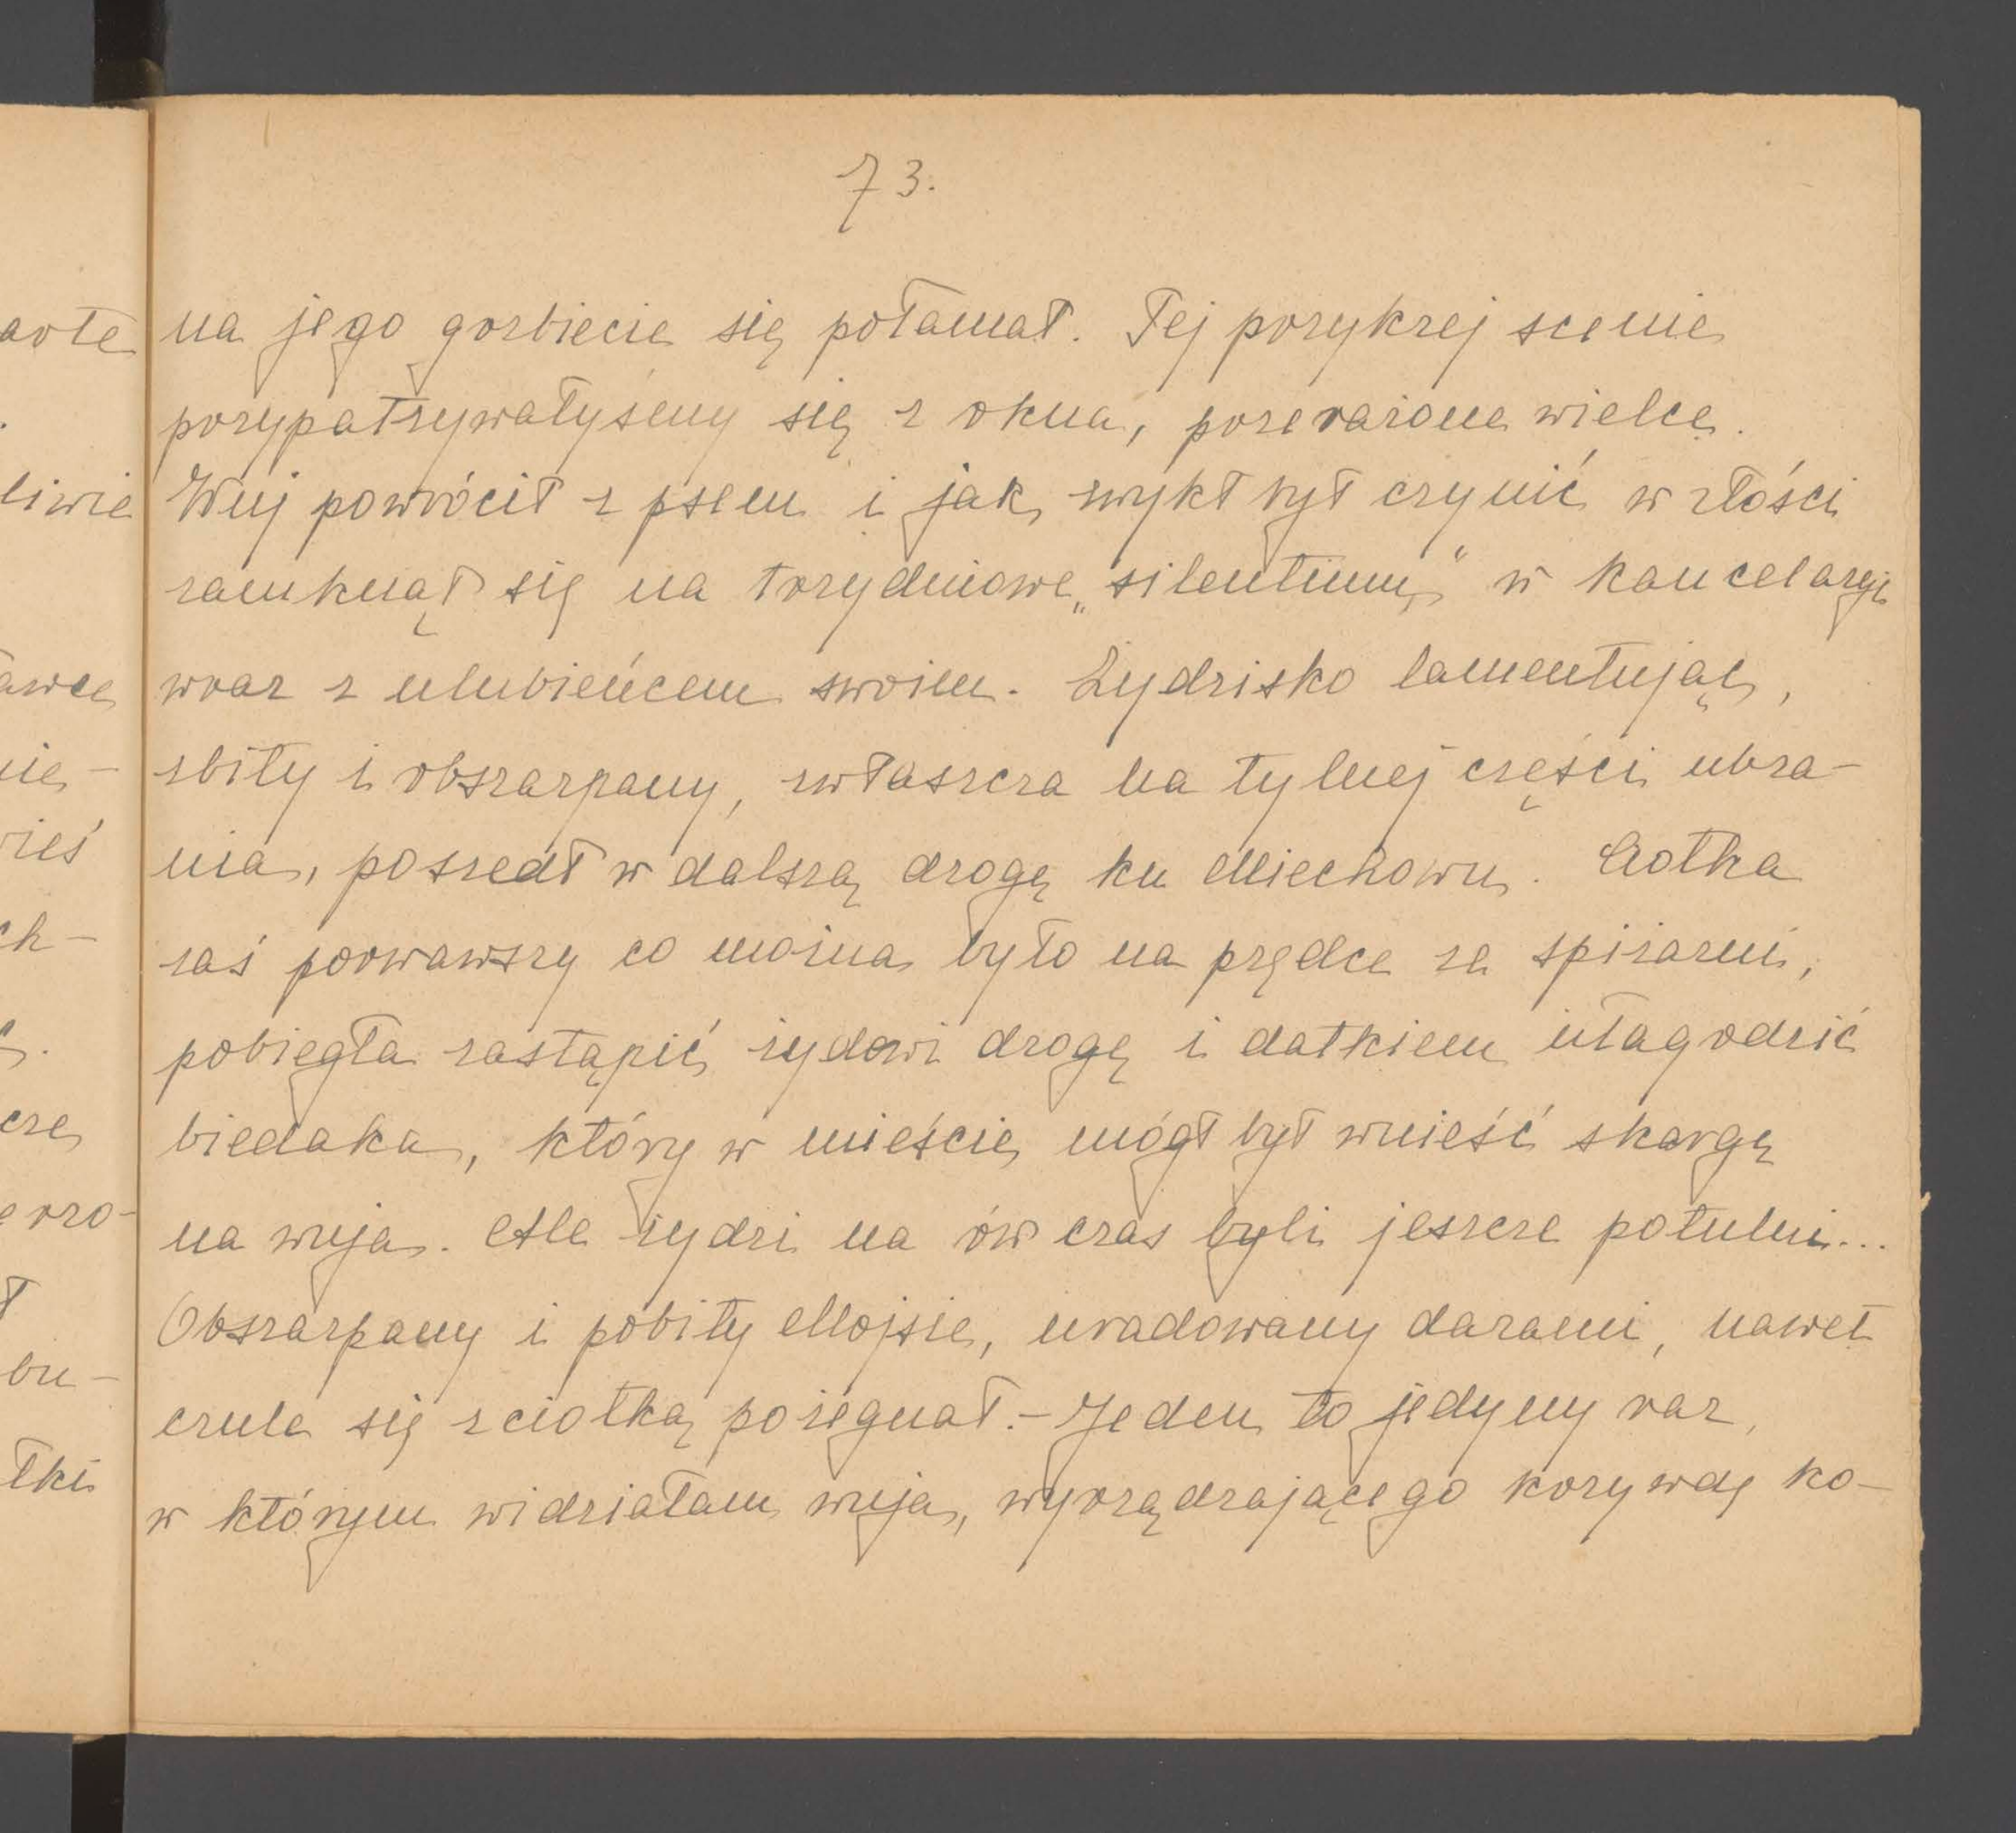 73.
na jego grzbiecie się połamał. Tej przykrej scenie
przypatrywałyśmy się z okna, przerażone wielce.
Wuj powrócił z psem i jak zwykł był czynić w złości
zamknął się na trzydniowe „silentium" w kancelarji
wraz z ulubieńcem swoim. Żydzisko lamentując,
zbity i obszarpany, zwłaszcza na tylnej części ubra-
nia, poszedł w dalszą drogę ku Miechowu. Ciotka
zaś porwawszy co można było na prędce ze spiżarni,
pobiegła zastąpić żydowi drogę i datkiem ułagodzić
biedaka, który w mieście mógł był wnieść skargę
na wuja. Ale żydzi na ów czas byli jeszcze potulni...
Obszarpany i pobity Mojsie, uradowany darami, nawet
czule się z ciotką pożegnał. - Jeden to jedyny raz,
w którym widziałam wuja, wyrządzającego krzywdę ko-
arte
liwie
awce
nie-
wieś
ch-
cze
e vro-
ł
bu-
tki